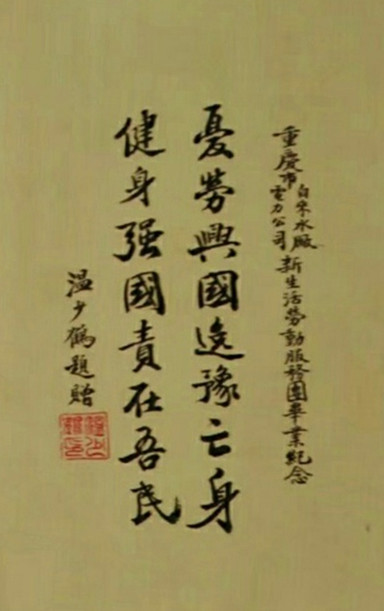 重慶市自来水厰電力公司新生活勞動服務團畢業紀念
憂勞興國逸豫亡身
健身强國責在吾民
温少鶴題贈